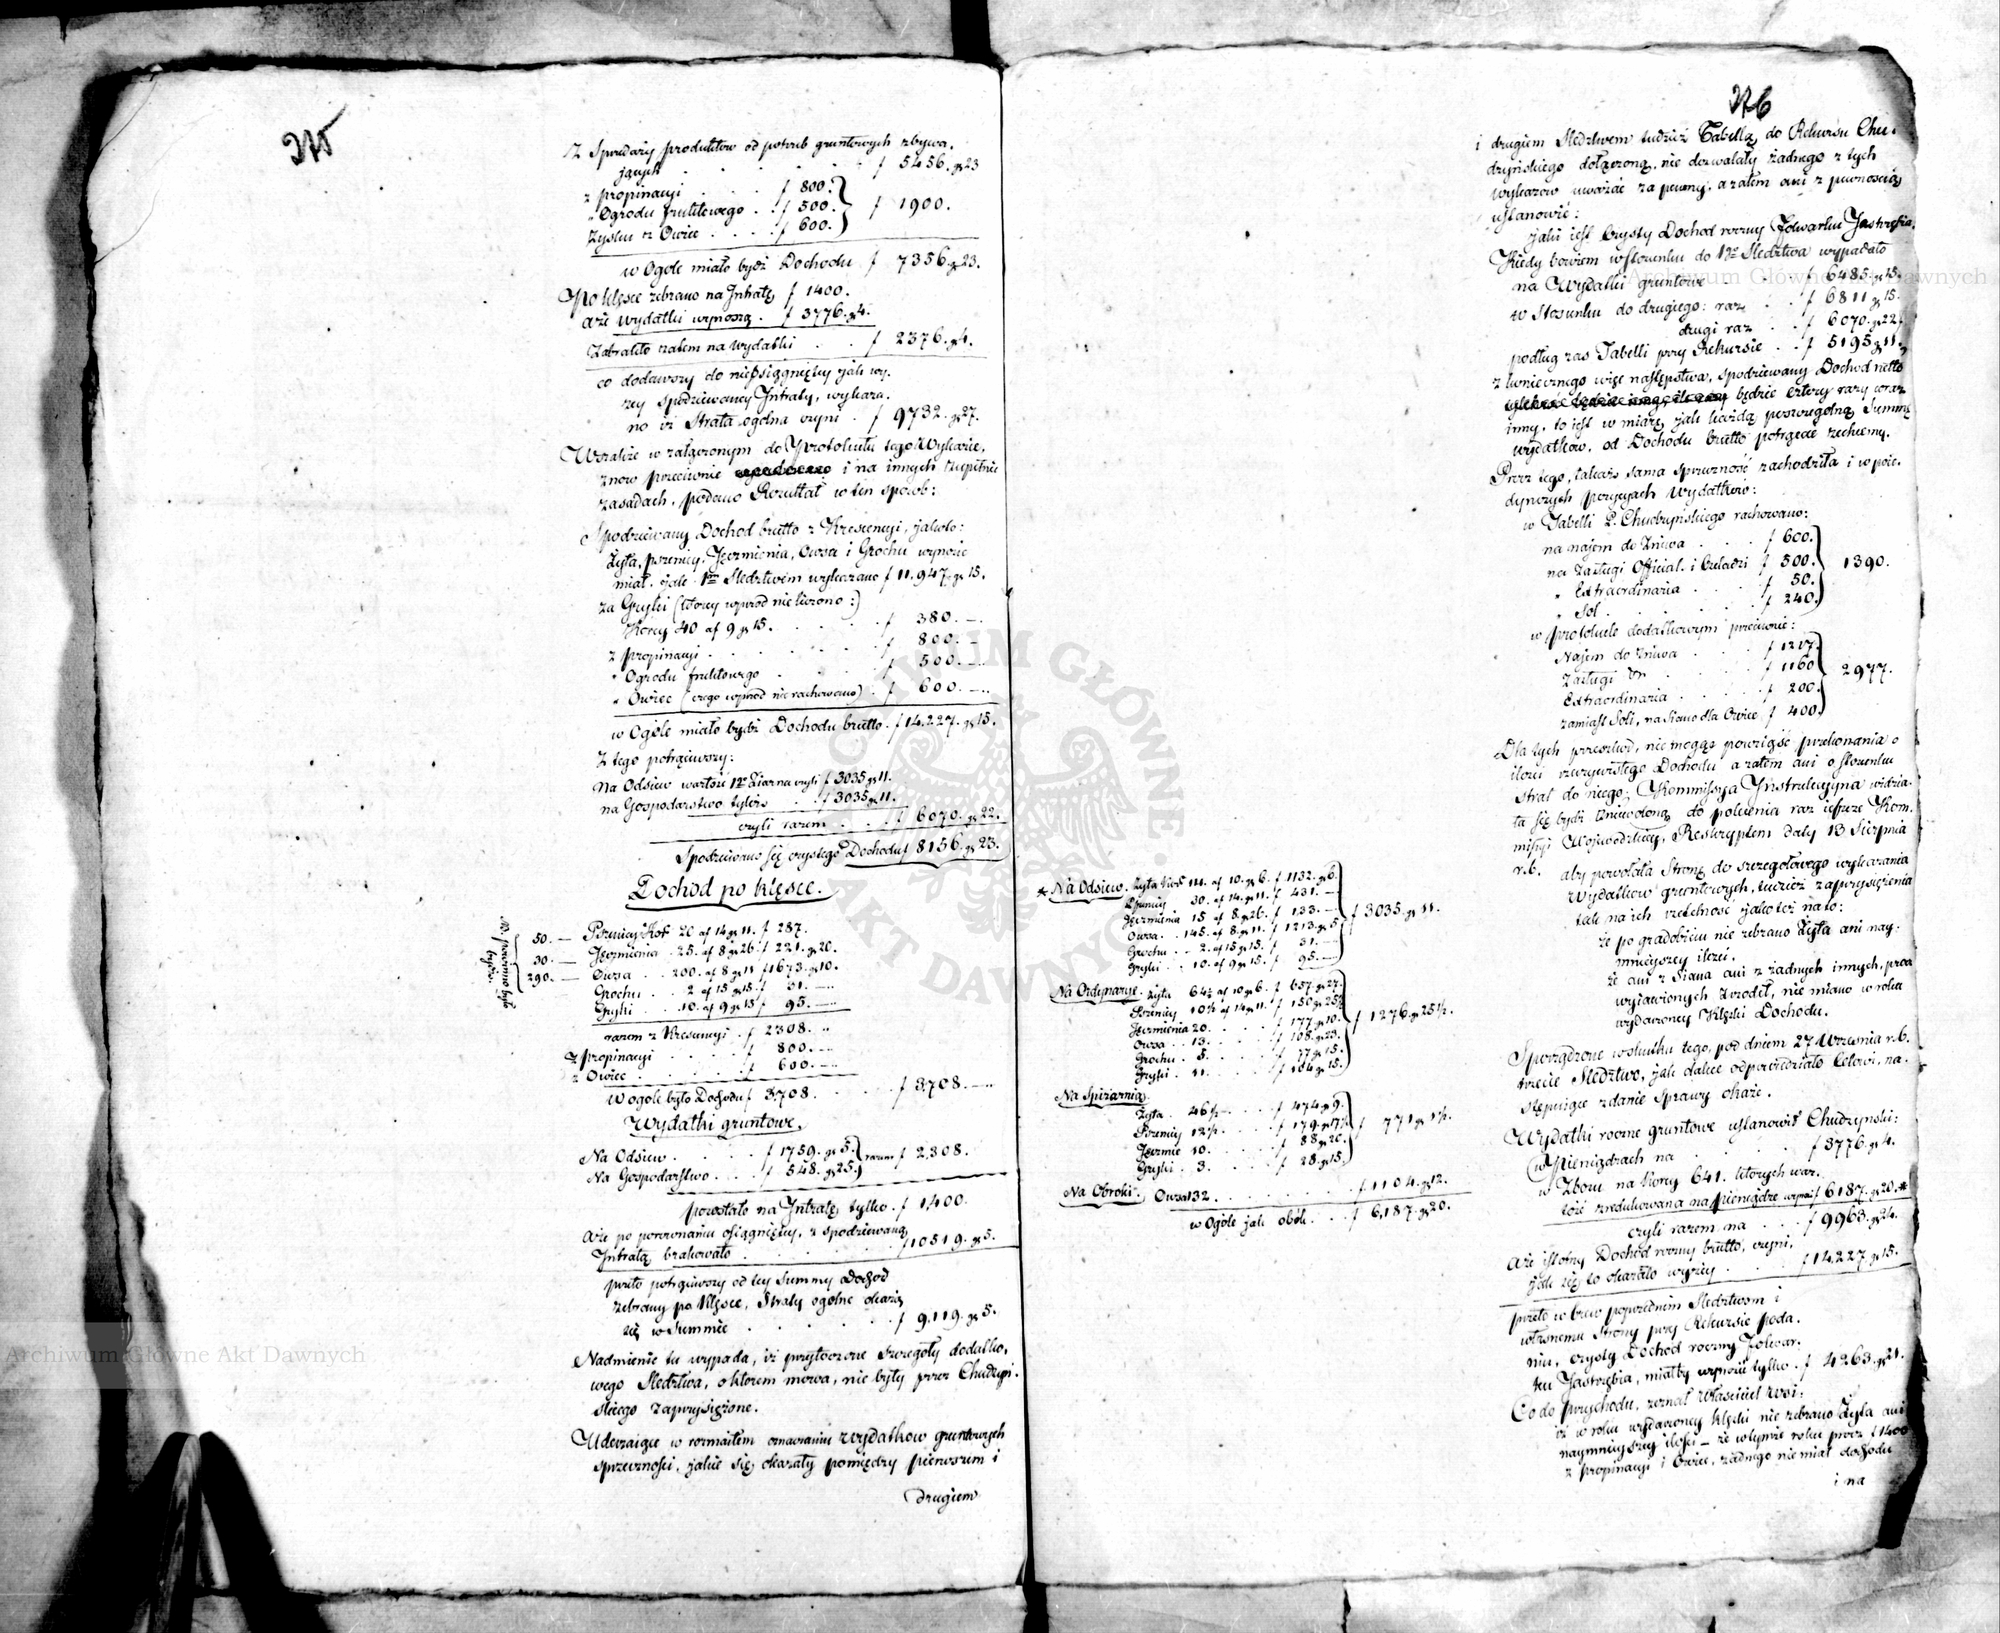 375
Z Sprzedaży produktów od potrzeb gruntowych zbywa,
jących . . . . . f 5456. gr 23
z propinacyi . . f 800.
„ Ogrodu fruktowego . . f 500. f 1900.
Zysku z Owiec . . . . f 600.
w Ogóle miało bydź Dochodu f 7356. gr 23.
Po klęsce zebrano na Intratę f 1400.
a że wydatki wynoszą . f 3776. gr 4.
Zabrakło zatem na wydatki . . f 2376. gr 4.
co dodawszy do nieosiągniętey jak wy-
żey spodziewaney Intraty, wykaza-
no iż Strata ogólna czyni . f 9732. gr 27.
Wszakże w załączonym do Protokułu tego Wykazie,
znow przeciwnie i na innych zupełnie
zasadach, podano Rezultat w ten sposób:
Spodziewany Dochod brutto z Krescencyi, jakoto:
Żyta, pszenicy, Jęczmienia, Owsa i Grochu wynosić
miał, jak 1m Śledztwem wykazano f 11,947. gr 15.
za Grykę (ktorey wprzod nie liczono:)
Korcy 40 af 9 gr 15. . . . f 380. —
z propinacyi . . . . f 800. —
„ Ogrodu fruktowego . . . f 500. —
„ Owiec (czego wprzod nie rachowano) . f 600. —
w Ogóle miało bydź Dochodu brutto . f 14,227. gr 15.
Z tego potrąciwszy:
Na Odsiew wartość 12o Ziarna czyli f 3035 gr 11.
na Gospodarstwo tyleż . . f 3035 gr 11.
czyli razem . . . f 6070. gr 22.
Spodziewano się czystego Dochodu f 8156. gr 23.
Dochod po klęsce.
50. — Pszenicy Kor 20 af 14 gr 11. f 287.
30. — Jęczmienia . 25. af 8 gr 26 f 221. gr 20.
290. — Owsa . . 200. af 8 gr 11 f 1673. gr 10.
Grochu . . 2 af 15 gr 15. f 31. —
Gryki . . 10. af 9 gr 15 f 95. —
razem z Krescencyi . f 2308. „
z propinacyi . . . f 800. —
z Owiec . . . . f 600. —
W ogóle było Dochodu f 3,708. . . . f 3,708. —
Wydatki gruntowe,
Na Odsiew . . . . f 1759. gr 5. razem f 2,308.
Na Gospodarstwo . . . f 548. gr 25.
pozostało na Intratę tylko . f 1,400.
a że po porównaniu osiągniętey, z spodziewaną
Intratą brakowało . . . . f 10519. gr 5.
przeto potrąciwszy od tey summy Dochod
zebrany po klęsce, Straty ogólne okażą
się w Summie . . . . f 9,119. gr 5.
Nadmienić tu wypada, iż przytoczone szczegóły dodatko,
wego Śledztwa, o ktorem mowa, nie były przez Chudzyń-
skiego zaprzysiężone.
Uderzaiące w rozmaitem oznaczaniu wydatkow gruntowych
sprzeczności, jakie się okazały pomiędzy pierwszem i
drugiem
376
i drugiem Śledztwem tudzież Tabellą do Rekursu Chu-
dzyńskiego dołączoną, nie dozwalały żadnego z tych
wykazow uważać za pewny, a zatem ani z pewnością
ustanowić:
jaki iest Czysty Dochod roczny Folwarku Jastrzębia.
Kiedy bowiem w stosunku do 1go Śledztwa wypadało
na Wydatki gruntowe . . 6485. gr 15.
w Stosunku do drugiego: raz . . f 6811 gr 15.
drugi raz . . f 6070. gr 22.
podług zas Tabelli przy Rekursie . . f 5195 gr 11.
z koniecznego więc następstwa, spodziewany Dochod netto
będzie cztery razy coraz
inny, to iest w miarę jak każdą poszczególną Summę
wydatkow, od Dochodu brutto potrącać zechcemy.
Prócz tego, takaż sama sprzeczność zachodziła i w poie-
dynczych pozycyach Wydatków:
w Tabelli P. Chudzyńskiego rachowano:
na najem do Żniwa . . . f 600.
na Zasługi Official. i Czeladzi f 500. 1390.
„ Extraordinaria . . . f 50.
„ Sol . . . . f 240.
w protokule dodatkowym przeciwnie:
Najem do Żniwa . . . f 1217.
Zasługi . . . f 1160 2977.
Extraordinaria . . . f 200.
zamiast Soli, na Siano dla Owiec f 400.
Dla tych przeszkod, nie mogąc powziąść przekonania o
ilości rzeczywistego Dochodu a zatem ani o stosunku
strat do niego; Kommissya Instrukcyjna widzia-
ła się bydź zniewoloną do polecenia raz ieszcze Kom-
missyi Wojewodzkiey, Reskryptem daty 13 Sierpnia
r. b. aby powołała Stronę do szczegółowego wykazania
Wydatkow gruntowych, tudzież zaprzysiężenia
tak na ich rzetelność jako też na to:
że po gradobiciu nie zebrano Żyta ani nay-
mnieyszey ilości.
że ani z Siana ani z żadnych innych, prócz
wyjawionych źrodeł, nie miano w roku
wydarzoney Klęski Dochodu.
Sporządzone w skutku tego, pod dniem 27 Września r. b.
trzecie Śledztwo, jak dalece odpowiedziało Celowi, na-
stępuiące zdanie Sprawy okaże.
Wydatki roczne gruntowe ustanowił Chudzyński:
w Pieniędzach na . . . . f 3776. gr 4.
w Zbożu na Korcy 641. których war-
tość zredukowana na pieniądze wynosi f 6187. gr 20. *
czyli razem na . . . f 9963. gr 24.
A że istotny Dochod roczny brutto, czyni,
jak się to okazało wyżey . . . f 14,227. gr 15.
przeto w brew poprzednim Śledztwom i
własnemu Strony przy Rekursie poda-
niu, czysty Dochod roczny Folwar-
ku Jastrzębia, miałby wynosić tylko . f 4263. gr 21.
Co do przychodu, zeznał Właściciel wsi:
iż w roku wydarzoney klęski nie zebrano Żyta ani
naymnieyszey ilości — że w tymże roku prócz f 1400
z propinacyi i Owiec, żadnego nie miał dochodu
i na
* Na Odsiew. Żyta Kor 111. af 10. gr 6. f 1132. gr 6.
Pszenicy 30. af 14. gr 11. f 431. —
Jęczmienia 15 af 8. gr 26. f 133. — f 3035. gr 11.
Owsa . . 145. af 8. gr 11. f 1213. gr 5
Grochu . . 2. af 15 gr 15. f 31. —
Gryki . . 10. af 9 gr 15. f 95. —
Na Ordynarye. Żyta 64½ af 10 gr 6. f 657. gr 27.
Pszenicy 10½ af 14 gr 11. f 150. gr 25½
Jęczmienia 20. . . . f 177. gr 10. f 1276. gr 25½.
Owsa . 13. . . . f 108. gr 23.
Grochu . 5. . . . f 77 gr 15.
Gryki . 11. . . . f 104. gr 15.
Na Spiżarnią. Żyta . 46½ . . . f 474 gr 9.
Pszenicy 12½ . . . f 179. gr 17½ f 771 gr 1½.
Jęczmie 10. . . . f 88 gr 20.
Gryki . 3. . . . f 28 gr 15.
Na Obroki. Owsa 132. . . . . f 1104. gr 12.
w Ogóle jak obok . . . f 6,187. gr 20.
ARCHIWUM GŁÓWNE AKT DAWNYCH
Archiwum Główne Akt Dawnych
Archiwum Główne Akt Dawnych